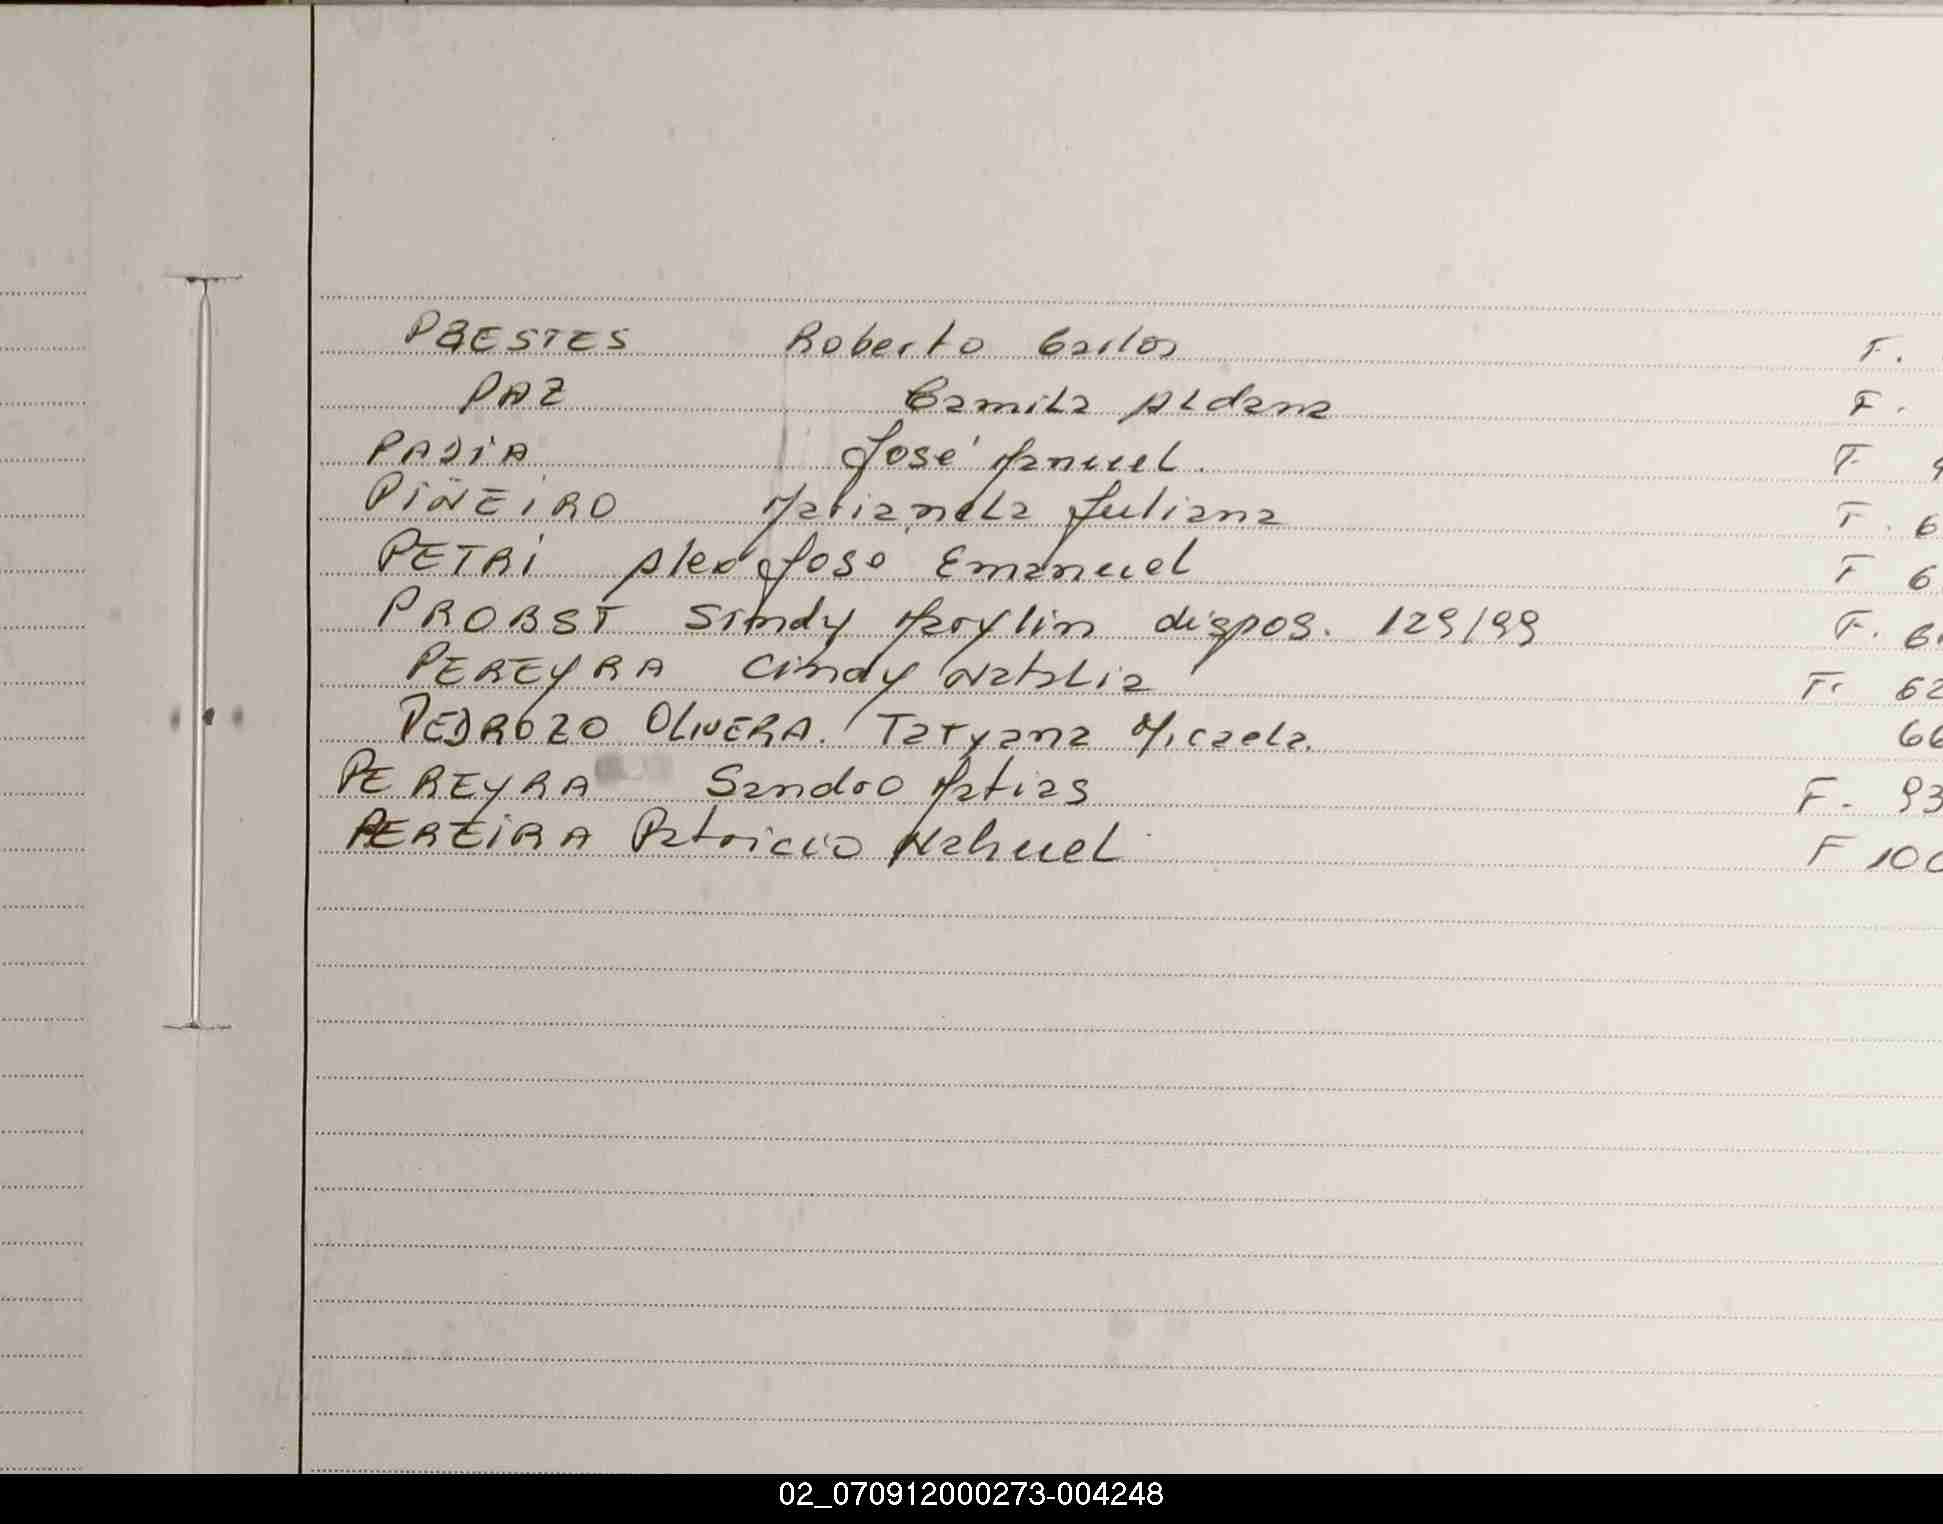 PRESTES Roberto Carlos F.
PAZ Camila Aldana F.
PADIA José Manuel. F 9
PIÑEIRO Marianela Juliana F. 6
PETRI Alex José Emanuel F 6
PROBST Sindy Marylin dispos. 129/99 F. 6
PEREYRA Cindy Natalia F. 62
PEDROZO OLIVERA. Tatyana Micaela. 66
PEREYRA Sandro Matias F. 93
PEREIRA Patricio Nahuel F 100
02_070912000273-004248